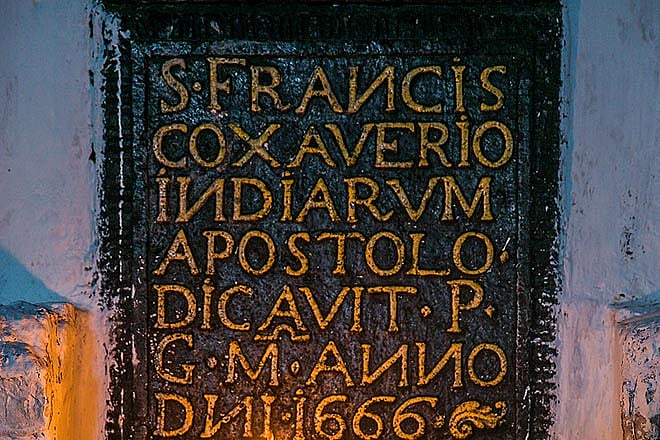 S·FRANCIS
COXAVERIO
INDIARVM
APOSTOLO·
DICAVIT·P·
G·M̃·ANNO
DNI·1666